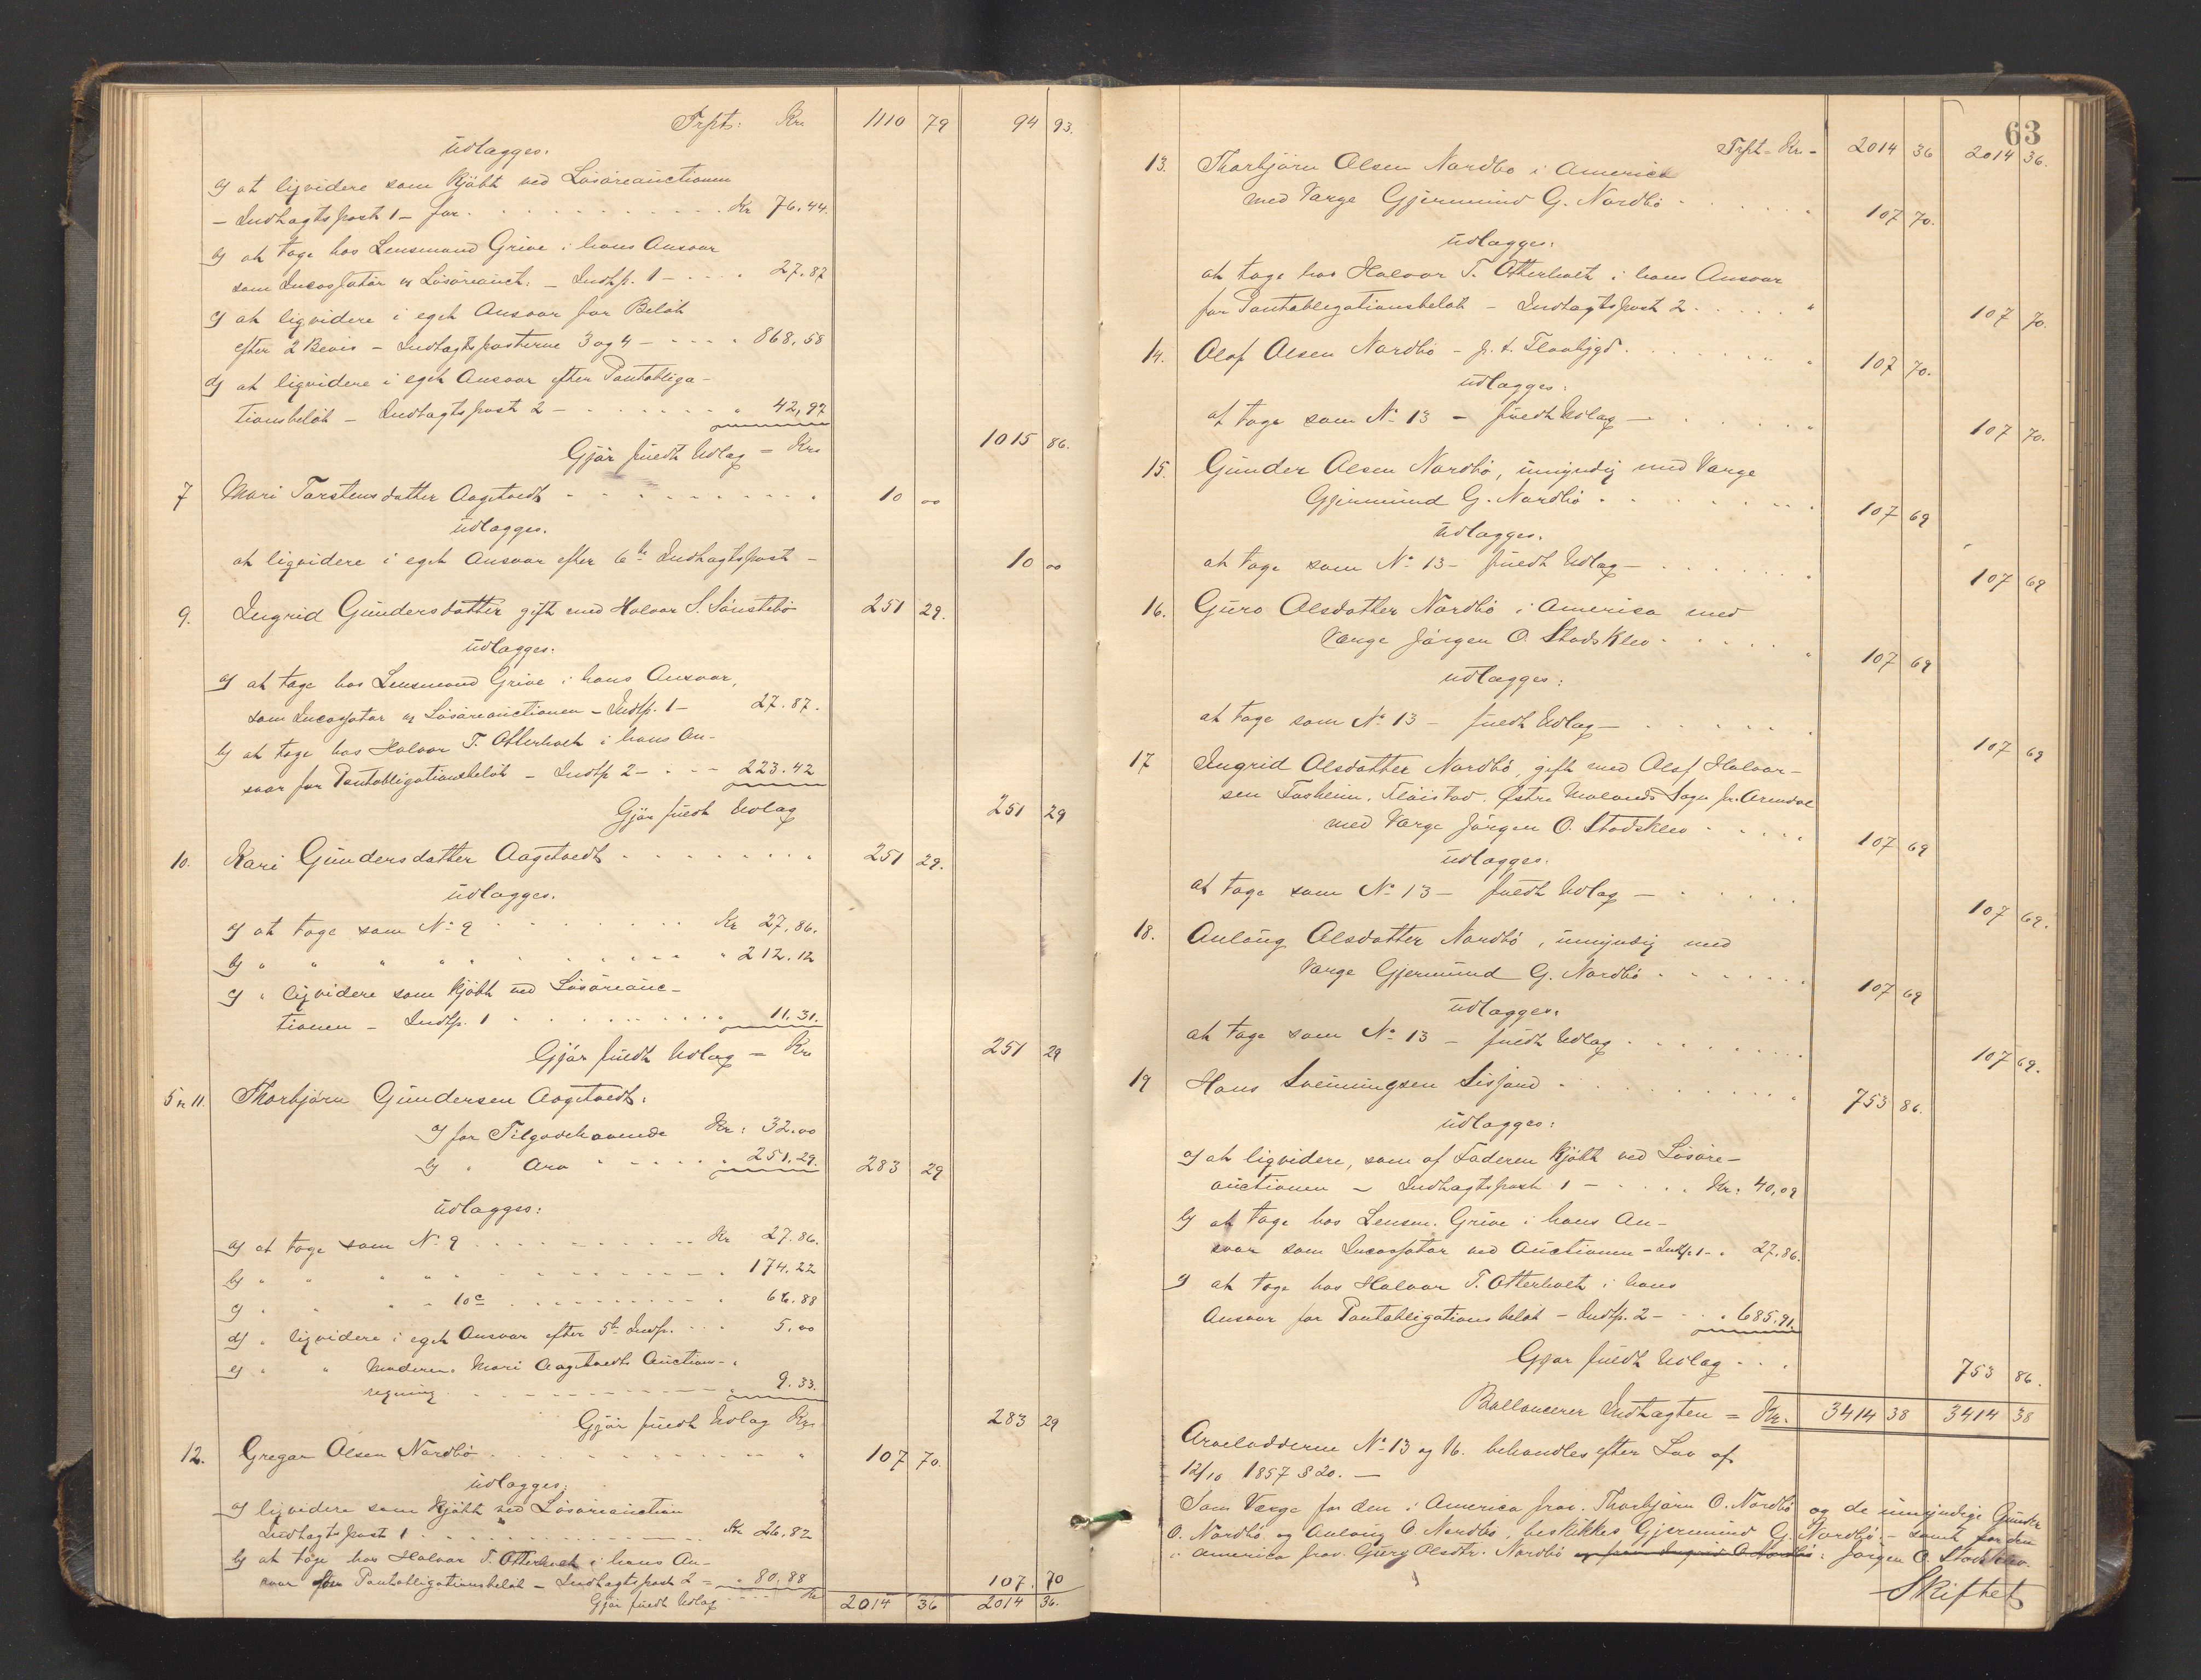 Trpt: Kr. 1110 79 94 93.
Udlægges.
a) at liqvidere som kjøbt ved Løsøreauctionen
– Indtægtspost 1 – for . . . Kr 76.44.
b) at tage hos Lensmand Grive i hans Ansvar
som Incassator v. Løsøreauct. – Indtp. 1 – . . . 27.87
c) at liqvidere i eget Ansvar for Beløb
efter 2 Bevis – Indtægtsposterne 3 og 4 – . . . 868.58
d) at liqvidere i eget Ansvar efter Pantobliga-
tionsbeløb – Indtægtspost 2 – . . . 42,97
Gjør fuldt Udlæg = Kr. 1015 86.
7 Mari Torstensdatter Aagetvedt . . . 10 00
Udlægges.
at liqvidere i eget Ansvar efter 6te Indtægtspost – 10 00
9. Ingrid Gundersdatter gift med Halvor S. Sønstebø 251 29.
Udlægges.
a) at tage hos Lensmand Grive i hans Ansvar,
som Incassator v. Løsøreauctionen – Indtp. 1 – 27.87.
b) at tage hos Halvor T. Otterholt i hans An-
svar for Pantobligationsbeløb – Indtp 2 – . . . 223.42
Gjør fuldt Udlæg 251 29
10. Kari Gundersdatter Aagetvedt . . . 251 29.
Udlægges.
a) at tage som No 9 . . . Kr 27,86.
b) " " " " . . . " 212.12
c) " liqvidere som kjøbt ved Løsøreauc-
tionen – Indtp. 1 . . . 11.31.
Gjør fuldt Udlæg = Kr. 251 29
5 & 11. Thorbjørn Gundersen Aagetvedt:
a) for Tilgodehavende Kr: 32.00
b) " Arv . . . 251.29. 283 29
Udlægges:
a) at tage som No 9 . . . Kr 27.86.
b) " " " " . . . 174.22
c) " " " 10c . . . 66.88
d) " liqvidere i eget Ansvar efter 5te Indtp. . . . 5.00
e) " " Moderen Mari Aagetvedts Auctions-
regning . . . 9.33.
Gjør fuldt Udlæg Kr. 283 29
12. Gregar Olsen Nordbø . . . " 107 70.
Udlægges.
a) liqvidere som kjøbt ved Løsøreauction
Indtægtspost 1 . . . Kr 26.82
b) at tage hos Halvor T. Otterholt i hans An-
svar for Pantobligationsbeløb – Indtægtspost 2 = " 80.88
Gjør fuldt Udlæg . . . Kr 107. 70
2014 36 2014 36.
63
Trpt = Kr – 2014 36 2014 36.
13. Thorbjørn Olsen Nordbø i America
med Værge Gjermund G. Nordbø . . . 107 70.
Udlægges.
at tage hos Halvor T. Otterholt i hans Ansvar
for Pantobligationsbeløb – Indtægtspost 2 . . . " 107 70.
14. Olaf Olsen Nordbø – p. t. Flaabygd . . . " 107 70.
Udlægges:
at tage som No 13 – fuldt Udlæg – . . . 107 70.
15. Gunder Olsen Nordbø, umyndig med Værge
Gjermund G. Nordbø . . . 107 69
Udlægges.
at tage som No 13 – fuldt Udlæg – . . . 107 69
16. Guro Olsdatter Nordbø i America med
Værge Jørgen O. Stadsklev . . . 107 69
Udlægges:
at tage som No 13 – fuldt Udlæg – . . . 107 69
17 Ingrid Olsdatter Nordbø, gift med Olaf Halvor-
sen Fosheim, Fløistad, Østre Molands Sogn pr. Arendal
med Værge Jørgen O. Stadsklev . . . 107 69
Udlægges.
at tage som No 13 – fuldt Udlæg – . . . 107 69.
18. Anlaug Olsdatter Nordbø, umyndig med
Værge Gjermund G. Nordbø . . . 107 69
Udlægges.
at tage som No 13 – fuldt Udlæg . . . 107 69.
19 Hans Sveinungsen Sisjord . . . 753 86.
Udlægges:
a) at liqvidere, som af Faderen kjøbt ved Løsøre-
auctionen – Indtægtspost 1 – . . . Kr: 40,09
b) at tage hos Lensm. Grive i hans An-
svar som Incassator ved Auctionen – Indtp. 1 – . 27.86.
c) at tage hos Halvor T. Otterholt i hans
Ansvar for Pantobligationsbeløb – Indtp. 2 – . . . 685.91.
Gjør fuldt Udlæg . . . 753 86.
Ballancerer Indtægten = Kr. 3414 38 3414 38
Arvelodderne No 13 og 16. behandles efter Lov af
12/10 1857 § 20. –
Som Værge for den i America frav. Thorbjørn O. Nordbø og de umyndige Gunder
O. Nordbø og Anlaug O. Nordbø, beskikkes Gjermund G. Nordbø. – samt for den
i America frav. Guro Olsdtr. Nordbø og for Ingrid O. Nordbø: Jørgen O. Stadsklev.
Skiftet